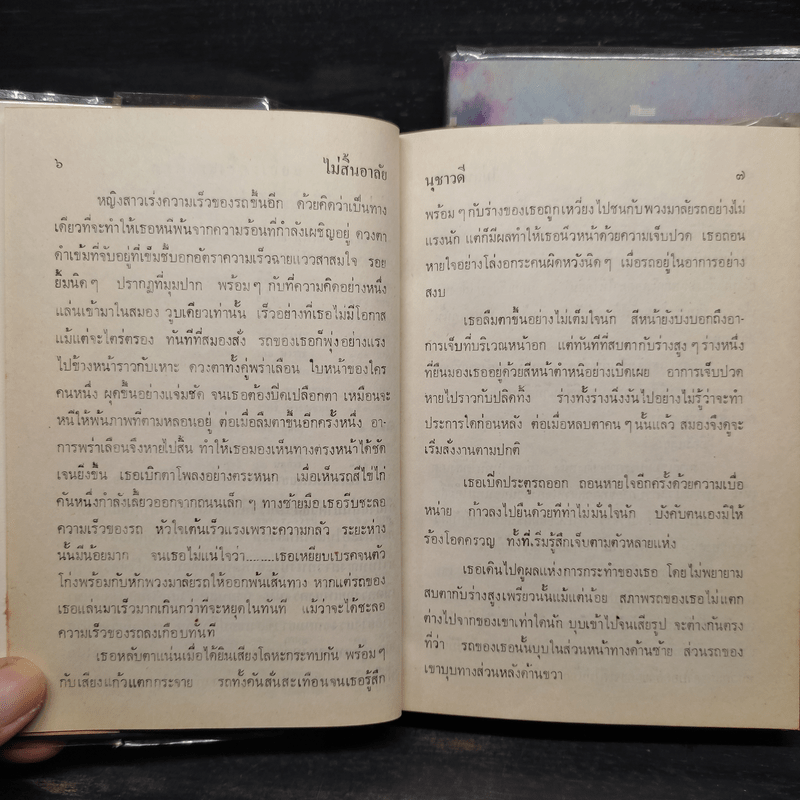 ๖
ไม่สิ้นอาลัย
หญิงสาวเร่งความเร็วของรถขึ้นอีก ด้วยคิดว่าเป็นทาง
เดียวที่จะทำให้เธอหนีพ้นจากความร้อนที่กำลังเผชิญอยู่ ดวงตา
ดำเข้มที่จับอยู่ที่เข็มชี้บอกอัตราความเร็วฉายแววสาสมใจ รอย
ยิ้มนิดๆ ปรากฏที่มุมปาก พร้อมๆ กับที่ความคิดอย่างหนึ่ง
แล่นเข้ามาในสมอง วูบเดียวเท่านั้น เร็วอย่างที่เธอไม่มีโอกาส
แม้แต่จะไตร่ตรอง ทันทีที่สมองสั่ง รถของเธอก็พุ่งอย่างแรง
ไปข้างหน้าราวกับเหาะ ดวงตาทั้งคู่พร่าเลือน ใบหน้าของใคร
คนหนึ่ง ผุดขึ้นอย่างแจ่มชัด จนเธอต้องปิดเปลือกตา เหมือนจะ
หนีให้พ้นภาพที่ตามหลอนอยู่ ต่อเมื่อลืมตาขึ้นอีกครั้งหนึ่ง อา-
การพร่าเลือนจึงหายไปสิ้น ทำให้เธอมองเห็นทางตรงหน้าได้ชัด
เจนยิ่งขึ้น เธอเบิกตาโพลงอย่างตระหนก เมื่อเห็นรถสีไข่ไก่
คันหนึ่งกำลังเลี้ยวออกจากถนนเล็กๆ ทางซ้ายมือ เธอรีบชะลอ
ความเร็วของรถ หัวใจเต้นเร็วแรงเพราะความกลัว ระยะห่าง
นั้นมีน้อยมาก จนเธอไม่แน่ใจว่า........เธอเหยียบเบรคจนตัว
โก่งพร้อมกับหักพวงมาลัยรถให้ออกพ้นเส้นทาง หากแต่รถของ
เธอแล่นมาเร็วมากเกินกว่าที่จะหยุดในทันที แม้ว่าจะได้ชะลอ
ความเร็วของรถลงเกือบทันที
เธอหลับตาแน่นเมื่อได้ยินเสียงโลหะกระทบกัน พร้อมๆ
กับเสียงแก้วแตกกระจาย รถทั้งคันสั่นสะเทือนจนเธอรู้สึก
นุชาวดี
๗
พร้อมๆ กับร่างของเธอถูกเหวี่ยงไปชนกับพวงมาลัยรถอย่างไม่
แรงนัก แต่ก็มีผลทำให้เธอนิ่วหน้าด้วยความเจ็บปวด เธอถอน
หายใจอย่างโล่งอกระคนผิดหวังนิดๆ เมื่อรถอยู่ในอาการอย่าง
สงบ
เธอลืมตาขึ้นอย่างไม่เต็มใจนัก สีหน้ายังบ่งบอกถึงอา-
การเจ็บที่บริเวณหน้าอก แต่ทันทีที่สบตากับร่างสูงๆ ร่างหนึ่ง
ที่ยืนมองเธออยู่ด้วยสีหน้าตำหนิอย่างเปิดเผย อาการเจ็บปวด
หายไปราวกับปลิดทิ้ง ร่างทั้งร่างนิ่งงันไปอย่างไม่รู้ว่าจะทำ
ประการใดก่อนหลัง ต่อเมื่อหลบตาคนๆ นั้นแล้ว สมองจึงดูจะ
เริ่มสั่งงานตามปกติ
เธอเปิดประตูรถออก ถอนหายใจอีกครั้งด้วยความเบื่อ
หน่าย ก้าวลงไปยืนด้วยทีท่าไม่มั่นใจนัก บังคับตนเองมิให้
ร้องโอดครวญ ทั้งที่เริ่มรู้สึกเจ็บตามตัวหลายแห่ง
เธอเดินไปดูผลแห่งการกระทำของเธอ โดยไม่พยายาม
สบตากับร่างสูงเพรียวนั้นแม้แต่น้อย สภาพรถของเธอไม่แตก
ต่างไปจากของเขาเท่าใดนัก บุบเข้าไปจนเสียรูป จะต่างกันตรง
ที่ว่า รถของเธอนั้นบุบในส่วนหน้าทางด้านซ้าย ส่วนรถของ
เขาบุบทางส่วนหลังด้านขวา